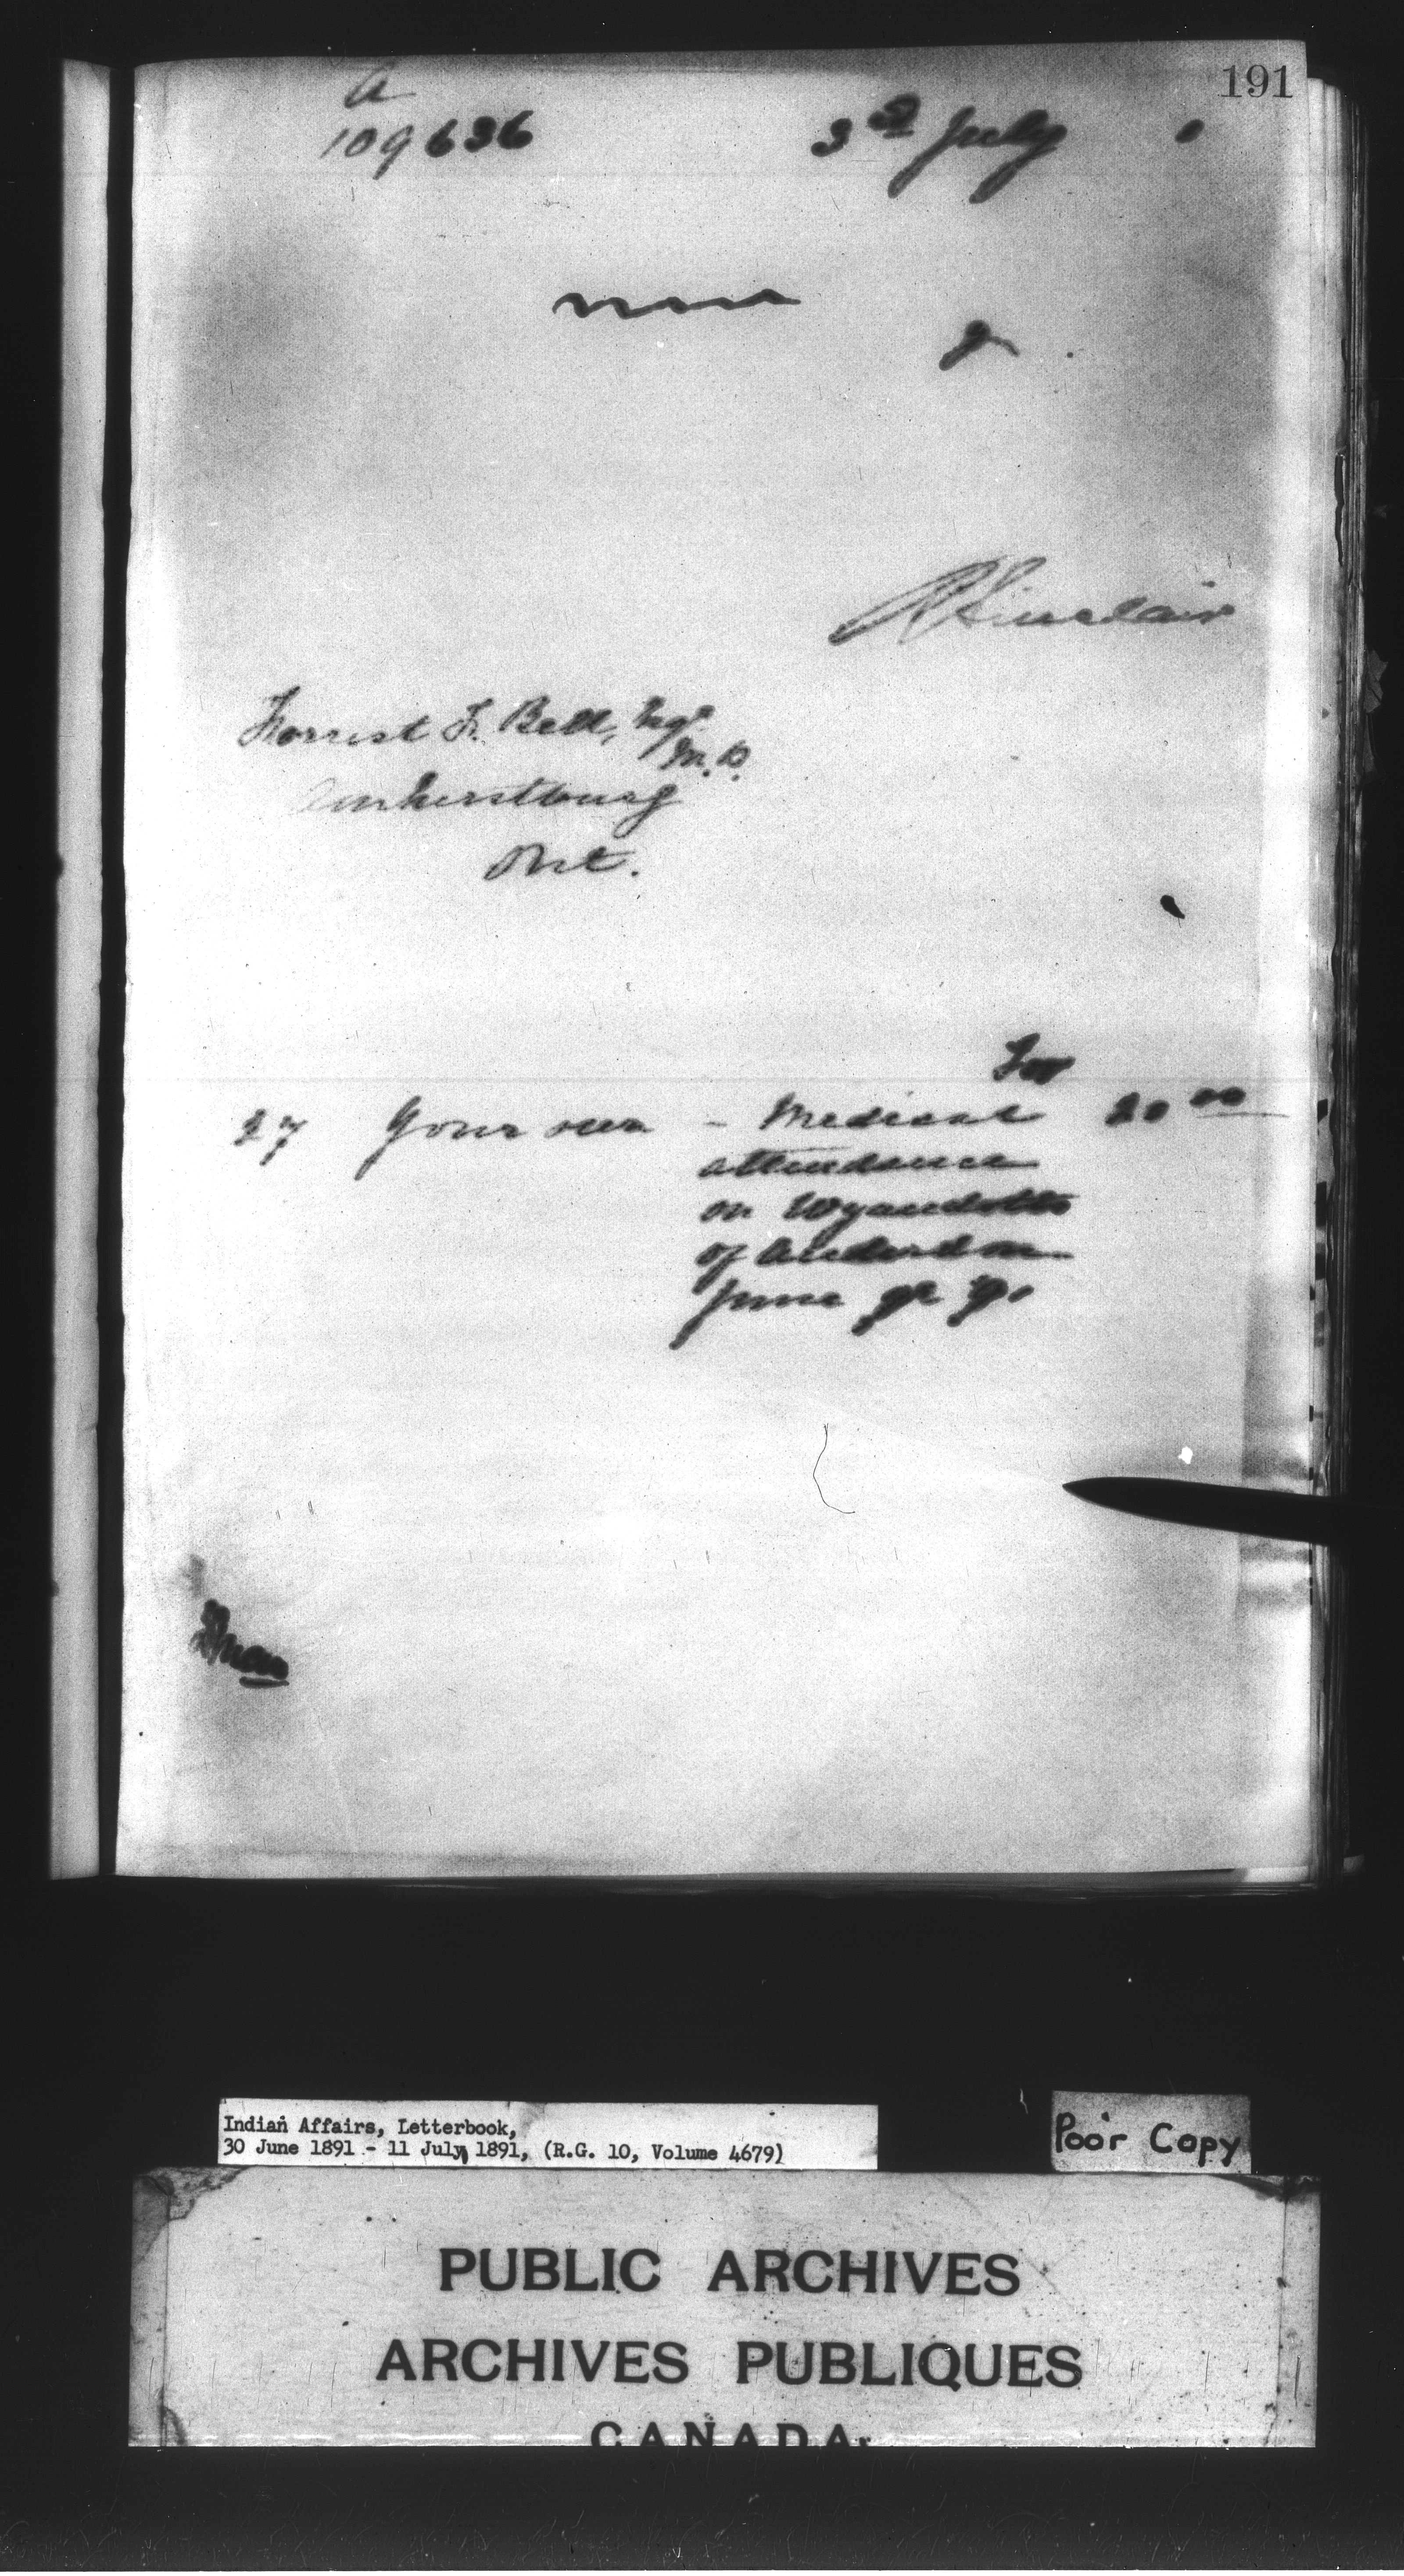 191
a
109636 3rd July
R Sinclair
Forrest F. Bell, Esqr
M.D.
Amherstburg
Ont.
For
27 Yourself - Medical 20 00
attendance
on Wyandotts
of Anderdon
June qr
Indian Affairs, Letterbook,
30 June 1891 - 11 July 1891, (R.G. 10, Volume 4679)
Poor Copy
PUBLIC ARCHIVES
ARCHIVES PUBLIQUES
CANADA